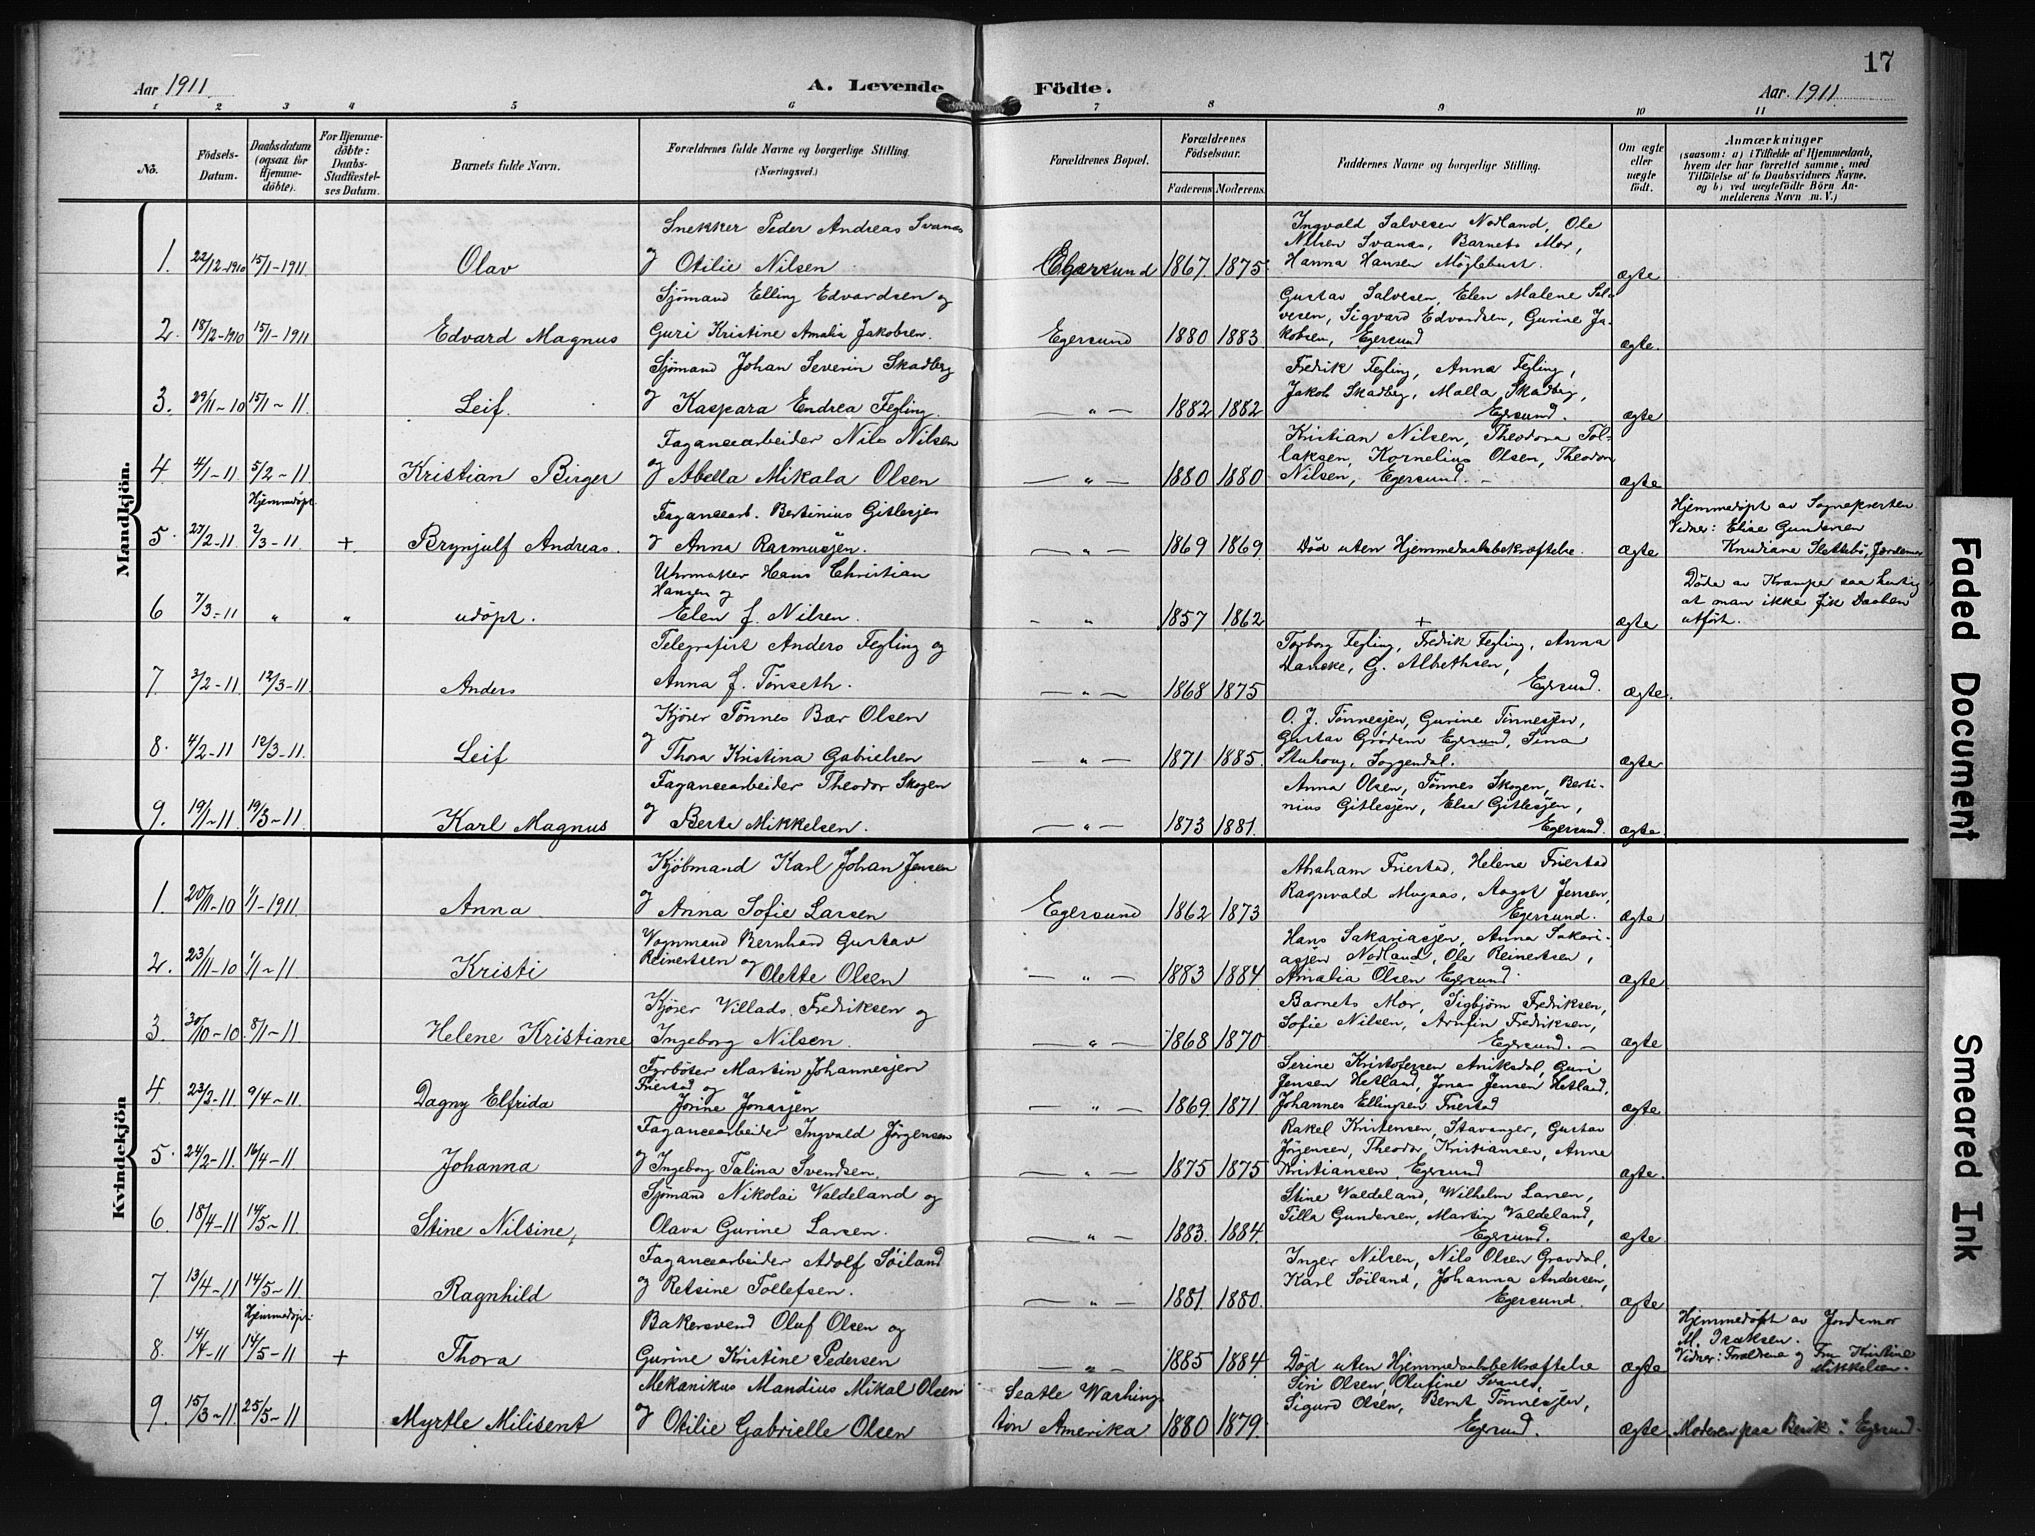 17
Aar 1911
A. Levende Födte.
Aar 1911
1 2 3 4 5 6 7 8 9 10 11
No.
Födsels-Datum.
Daabsdatum (ogsaa for Hjemme-döbte).
For Hjemme-döbte: Daabs-Stadfæstel-ses Datum.
Barnets fulde Navn.
Forældrenes fulde Navne og borgerlige Stilling. (Næringsvei.)
Forældrenes Bopæl.
Forældrenes Födselsaar.
Faderens Moderens
Faddernes Navne og borgerlige Stilling.
Om ægte eller uægte födt.
Anmærkninger
(saasom: a) i Tilfælde af Hjemmedaab,
hvem der har forrettet samme, med
Tilföielse af to Daabsvidners Navne,
og b) ved uægtefödte Börn An-
melderens Navn m. V.)
Mandkjön.
Snekker Peder Andreas Svanes
1. 22/12-1910 15/1-1911. Olav og Otilie Nilsen Egersund 1867 1875.
Ingvald Salvesen Nodland, Ole
Nilsen Svanes, Barnets Mor,
Hanna Hansen Möglebust. ægte
Sjömand Elling Edvardsen og
2. 18/12-1910 15/1-1911 Edvard Magnus Guri Kristine Amalia Jakobsen. Egersund 1880 1883.
Gustav Salvesen, Elen Malene Sal-
vesen, Sigvard Edvardsen, Gurine Ja-
kobsen, Egersund ægte.
Sjömand Johan Severin Skadberg
3. 29/11-10 15/1-11. Leif. og Kaspara Endrea Fegling. — " — 1882 1882
Fredrik Fegling, Anna Fegling,
Jakob Skadberg, Malla Skadberg,
Egersund. ægte
Fayancearbeider Nils Nilsen
4 4/1-11 5/2-11 Kristian Birger og Abella Mikala Olsen — " — 1880 1880
Kristian Nilsen, Theodora Tol-
laksen, Kornelius Olsen, Theodor
Nilsen, Egersund. — ægte
Hjemmedöpt
Fayancearb. Bertinius Gitlesjen
5. 27/2-11. 2/3-11. + Brynjulf Andreas. og Anna Rasmussen. — " — 1869 1869. Död uten Hjemmedaabsbekræftelse. ægte
Hjemmedöpt av Sognepresten
Vidner: Elise Gundersen
Knudiane Slettebö, Jordemor
Uhrmaker Hans Christian
Hansen og
6 7/3-11 " " udöpt. Elen f. Nilsen. — " 1857 1862 + ægte
Döde av Krampe saa hurtig
at man ikke fik Daaben
utfört.
Telegrafist Anders Fegling og
7. 3/2-11. 12/3-11. Anders Anna f. Tönseth. — " — 1868 1875
Torborg Fegling, Fredrik Fegling, Anna
Daneke, G. Albethsen,
Egersund. ægte.
Kjörer Tönnes Bær Olsen
8. 4/2-11 12/3-11. Leif og Thora Kristina Gabrielsen — " — 1871 1885.
O. J. Tönnesjen, Gurine Tönnesjen,
Gustav Grödem Egersund, Sina
Stuhoug, Soggendal. ægte
Fayancearbeider Theodor Skogen
9. 19/1-11. 19/3-11. Karl Magnus og Berte Mikkelsen. — " — 1873 1881.
Anna Olsen, Tönnes Skogen, Berti-
nius Gitlesjen, Elsa Gitlesjen,
Egersund. ægte.
Kvindekjön
Kjöbmand Karl Johan Jensen
1. 20/11-10 1/1-1911. Anna og Anna Sofie Larsen Egersund 1862 1873
Abraham Friestad, Helene Friestad
Ragnvald Mugaas, Aagot Jensen,
Egersund. ægte
Vognmand Bernhard Gustav
Reinertsen og
2. 23/11-10 1/1-11 Kristi Olette Olsen — " — 1883 1884.
Hans Sakariasjen, Anna Sakari-
asjen Nodland, Ole Reinertsen,
Amalia Olsen Egersund. ægte
Kjörer Villads. Fredriksen og
3. 30/10-10. 8/1-11 Helene Kristiane Ingeborg Nilsen. — " — 1868 1870
Barnets Mor, Sigbjörn Fredriksen,
Sofie Nilsen, Arnfin Fredriksen,
Egersund. — ægte
Fyrböter Martin Johannesjen
Friestad og
4 23/3-11 9/4-11. Dagny Elfrida Jorine Jonasjen — " — 1869 1871
Serine Kristofersen Aniksdal, Guri
Jensen Hetland, Jonas Jensen Hetland,
Johannes Ellingsen Friestad ægte
Fayancearbeider Ingvald Jörgensen
5. 24/2-11. 16/4-11 Johanna og Ingeborg Talina Svendsen. — " 1875 1875
Rakel Kristensen, Stavanger, Gustav
Jörgensen, Theodor Kristiansen, Anna
Kristiansen Egersund ægte.
Sjömand Nikolai Valdeland og
6. 18/4-11 14/5-11. Stine Nilsine, Olava Gurine Larsen. — " — 1883. 1884.
Stine Valdeland, Wilhelm Larsen,
Tilla Gundersen, Martin Valdeland,
Egersund. ægte
Fayancearbeider Adolf Söiland
7 13/4-11 14/5-11. Ragnhild og Retsine Tollefsen. — " — 1881. 1880.
Inger Nilsen, Nils Olsen Gravdal,
Karl Söiland, Johanna Andersen,
Egersund. ægte
Hjemmedöpt:
Bakersvend Oluf Olsen og
8. 14/4-11 14/5-11 + Thora Gurine Kristine Pedersen — " — 1885 1884. Död uten Hjemmedaabsbekræftelse ægte
Hjemmedöpt av Jordemor
M. Isaksen.
Vidner: Foreldrene og Fru Kristine
Mikkelsen.
Mekanikus Mandius Mikal Olsen
9. 15/3-11 25/5-11 Myrtle Milisent og Otilie Gabrielle Olsen
Seatle Washing-
ton Amerika 1880 1879.
Siri Olsen, Olufine Svanes,
Sigurd Olsen, Bernt Tönnesjen,
Egersund. ægte. Moderen paa Besök i Egersund.
Faded Document
Smeared Ink